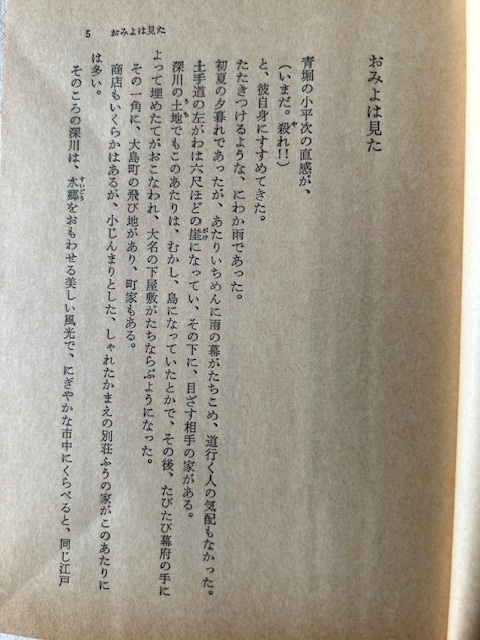 5 おみよは見た
おみよは見た
青堀の小平次の直感が、
(いまだ。殺れ!!)
と、彼自身にすすめてきた。
たたきつけるような、にわか雨であった。
初夏の夕暮れであったが、あたりいちめんに雨の幕がたちこめ、道行く人の気配もなかった。
土手道の左がわは六尺ほどの崖になってい、その下に、目ざす相手の家がある。
深川の土地でもこのあたりは、むかし、島になっていたとかで、その後、たびたび幕府の手に
よって埋めたてがおこなわれ、大名の下屋敷がたちならぶようになった。
その一角に、大島町の飛び地があり、町家もある。
商店もいくらかはあるが、小じんまりとした、しゃれたかまえの別荘ふうの家がこのあたりに
は多い。
そのころの深川は、水郷をおもわせる美しい風光で、にぎやかな市中にくらべると、同じ江戸